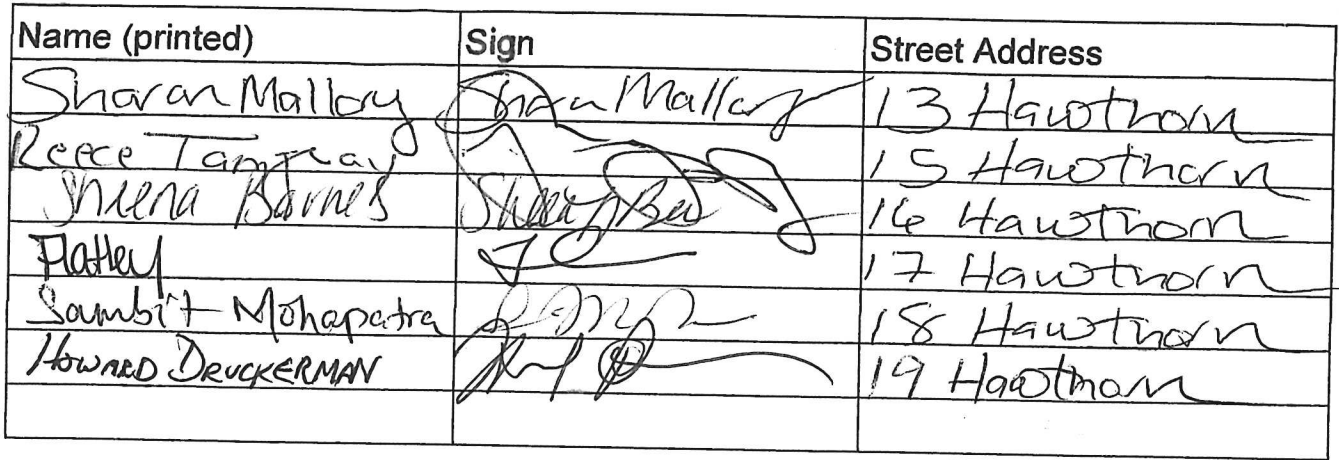 Name (printed) Sign Street Address
Sharon Mallory Sharon Mallory 13 Hawthorn
Reece Tanguay 15 Hawthorn
Sheena Barnes 16 Hawthorn
Flatley 17 Hawthorn
Sambit Mohapatra 18 Hawthorn
HOWARD DRUCKERMAN 19 Hawthorn